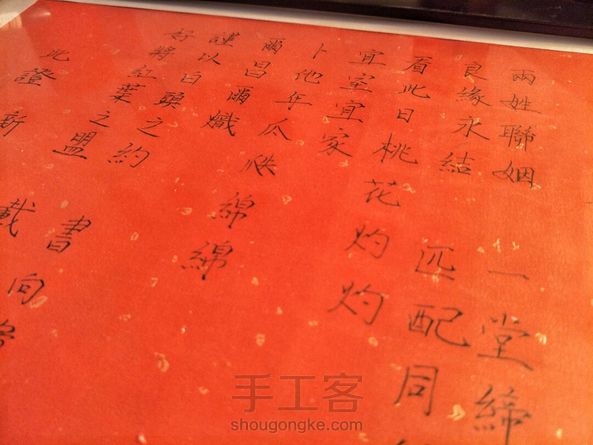 兩姓聯姻 一堂締
良緣永結 匹配同
看此日桃花灼灼
宜室宜家
卜他年瓜瓞綿綿
爾昌爾熾
謹以白頭之約 書向
好將紅葉之盟 載
此證 新
手工客
shougongke.com